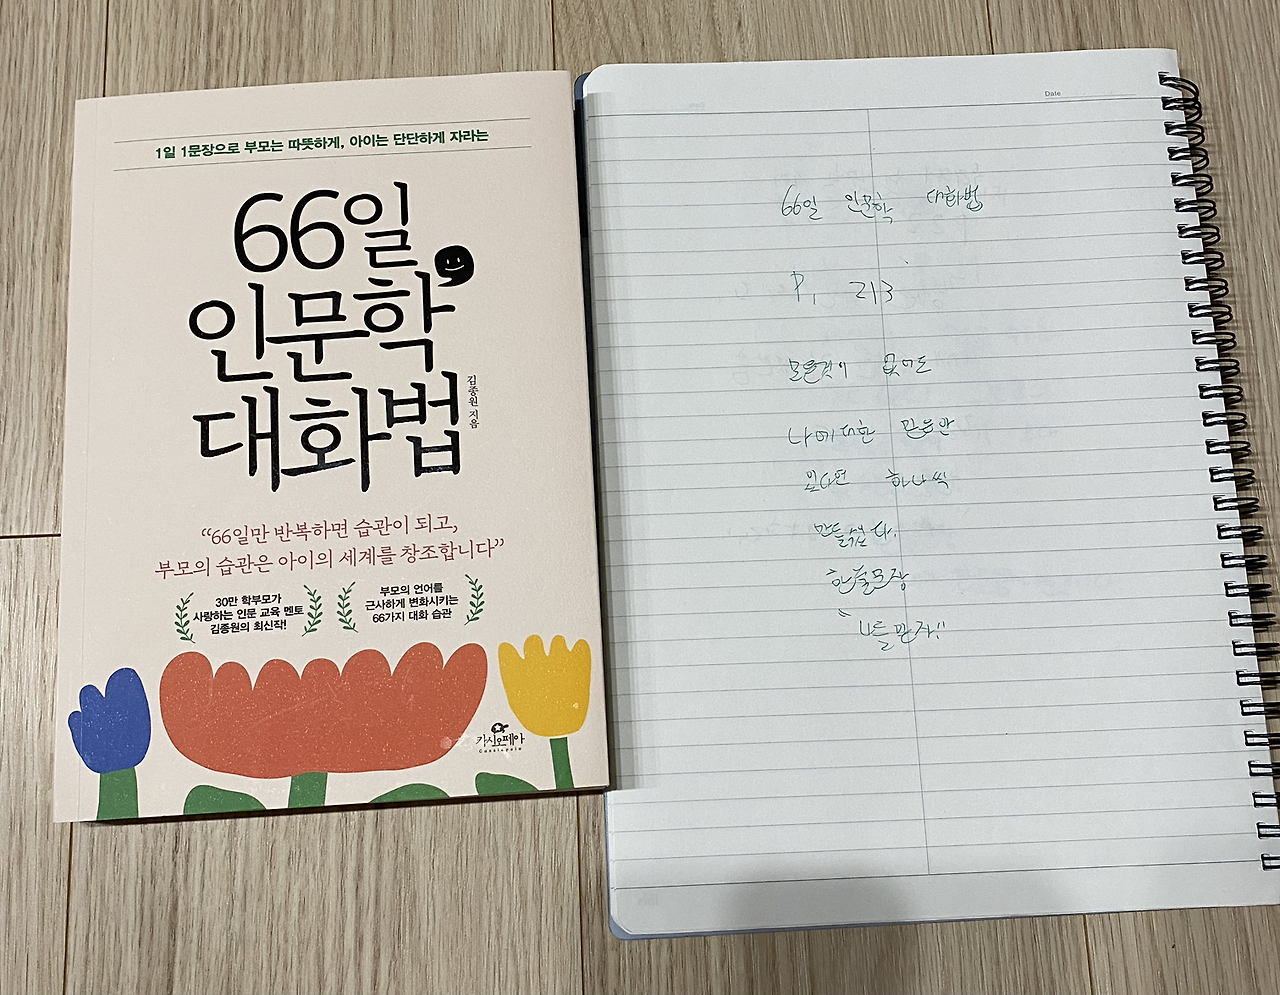 1일 1문장으로 부모는 따뜻하게, 아이는 단단하게 자라는
66일
인문학
대화법
김종원 지음
“66일만 반복하면 습관이 되고,
부모의 습관은 아이의 세계를 창조합니다”
30만 학부모가
사랑하는 인문 교육 멘토
김종원의 최신작!
부모의 언어를
근사하게 변화시키는
66가지 대화 습관
카시오페아
Cassiopeia
Date
66일 인문학 대화법
P. 213
모든것이 없어도
나에대한 믿음만
있다면 하나씩
만들수있다.
한줄문장
"나를 믿자!!